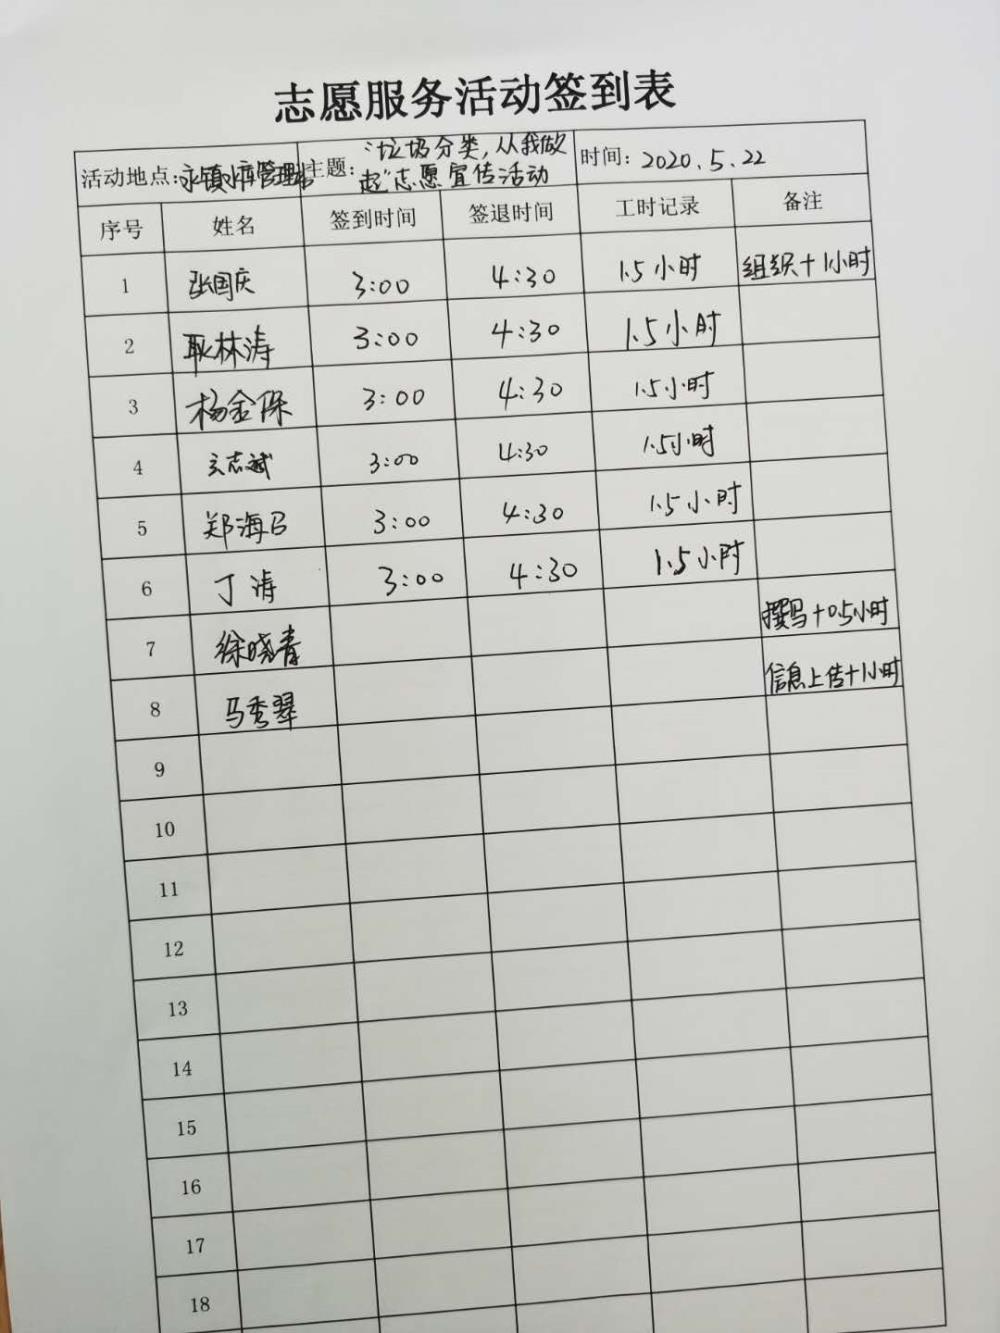 志愿服务活动签到表
活动地点:永镇水库管理站 主题:"垃圾分类,从我做起"志愿宣传活动 时间:2020.5.22
序号 姓名 签到时间 签退时间 工时记录 备注
1 张国庆 3:00 4:30 1.5小时 组织+1小时
2 耿林涛 3:00 4:30 1.5小时
3 杨金保 3:00 4:30 1.5小时
4 志斌 3:00 4:30 1.5小时
5 郑海 3:00 4:30 1.5小时
6 丁涛 3:00 4:30 1.5小时
7 徐晓青 撰写+0.5小时
8 马秀翠 信息上传+1小时
9
10
11
12
13
14
15
16
17
18